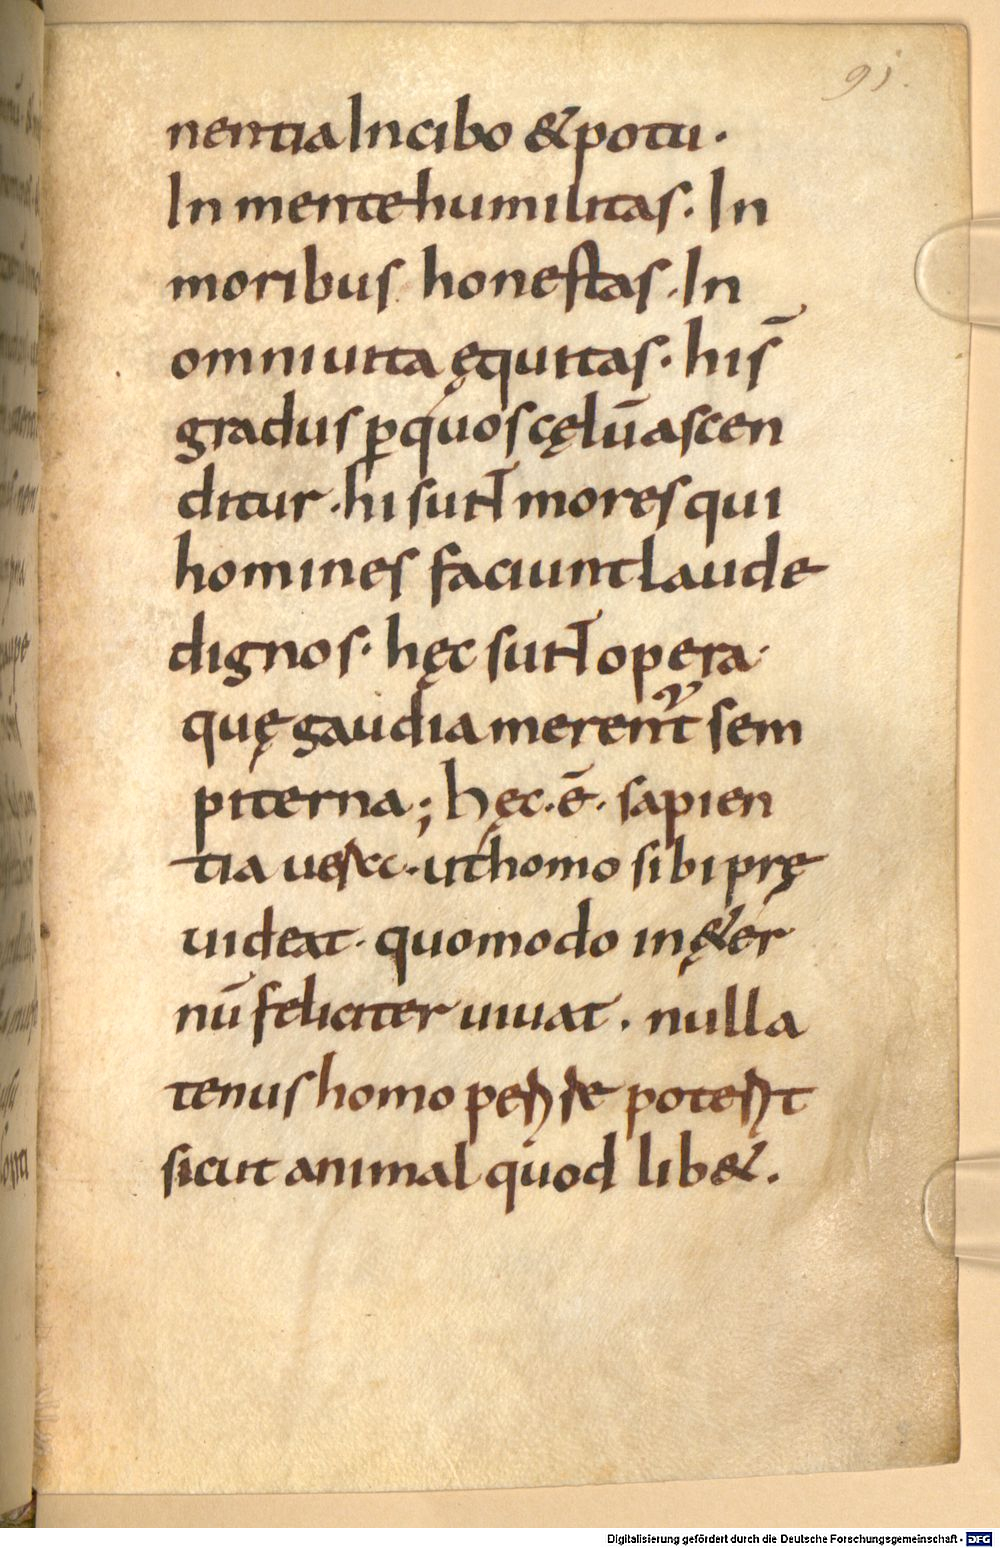 95.
nentia In cibo & potu·
In mente humilitas· In
moribus honestas· In
omni uita ęquitas· hi s̄
gradus ꝑ quos cęlū ascen
ditur· hi sunt mores qui
homines faciunt laude
dignos· hęc sunt opera·
quę gaudia merent᷒ sem
piterna; hęc· ē· sapien
tia uera· ut homo sibi prę
uideat· quomodo in ę&er
nū feliciter uiuat· nulla
tenus homo
sicut animal quod lib&.
Digitalisierung gefördert durch die Deutsche Forschungsgemeinschaft - DFG